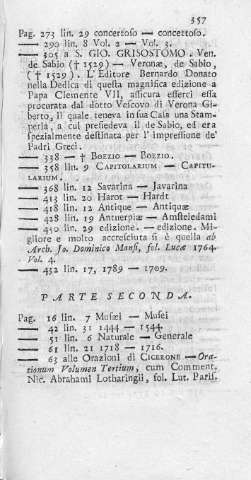 357
Pag. 273 lin. 29 concertoso — concettoso.
—— 290 lin. 8 Vol. 2 — Vol. 3.
—— 305 a S. GIO. GRISOSTOMO. Ven.
de Sabio († 1529) — Veronæ, de Sabio,
( † 1529 ). L'Editore Bernardo Donato
nella Dedica di questa magnifica edizione a
Papa Clemente VII, assicura esserci essa
procurata dal dotto Vescovo di Verona Gi-
berto, Il quale teneva in sua Casa una Stam-
peria, a cui presiedeva il de Sabio, ed era
spezialmente destinata per l' impressione de'
Padri Greci.
—— 338 — † BOEZIO — BOEZIO.
—— 358 lin. 9 CAPITOLARIUM — CAPITU-
LARIUM.
—— 368 lin. 12 Savarina — Javarina
—— 413 lin. 20 Harot — Hardt
—— 418 lin. 12 Antique — Antiquæ
—— 428 lin. 19 Antuerpiæ — Amsteledami
—— 450 lin. 29 edizione. — edizione. Mi-
gliore e molto accresciuta si è quella ab
Arch. Jo. Dominico Mansi, fol. Lucæ 1764.
Vol. 4.
—— 452 lin. 17, 1789 — 1709.
PARTE SECONDA.
Pag. 16 lin. 7 Musæi — Musei
—— 42 lin. 31 1444 — 1544.
—— 51 lin. 6 Naturale — Generale
—— 61 lin. 21 1718 — 1716.
—— 63 alle Orazioni di CICERONE — Ora-
tionum Volumen Tertium, cum Comment.
Nic. Abrahami Lotharingii, fol. Lut. Paris.